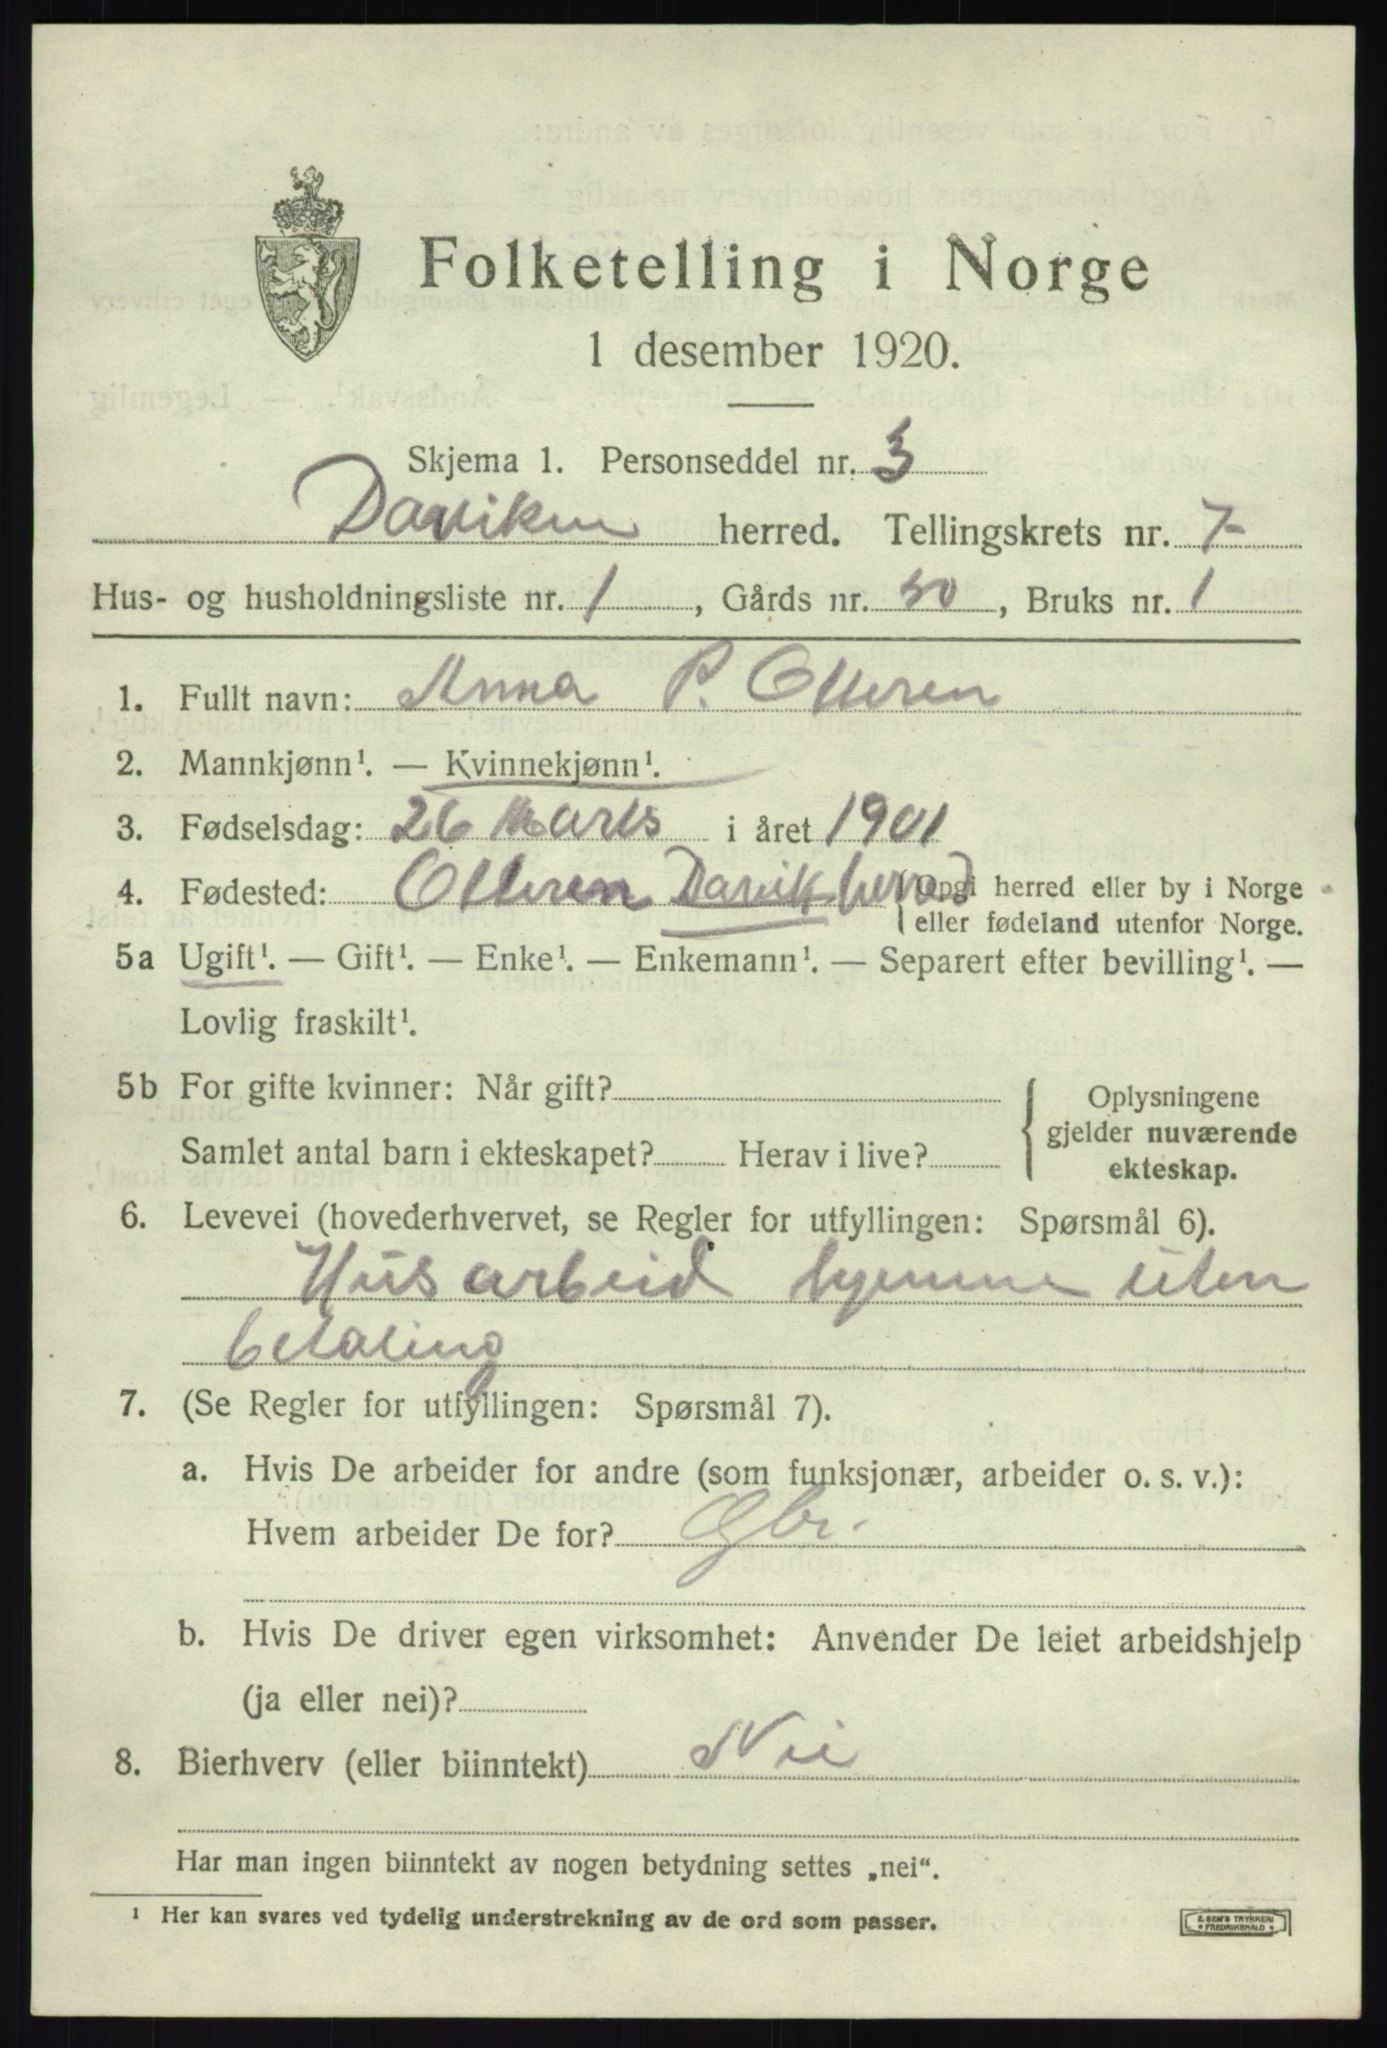 Folketelling i Norge
1 desember 1920.
Skjema 1. Personseddel nr. 3
Daviken herred. Tellingskrets nr. 7
Hus- og husholdningsliste nr. 1, Gårds nr. 50, Bruks nr. 1
1. Fullt navn: Anna P. Otteren
2. Mannkjønn¹. — Kvinnekjønn¹.
3. Fødselsdag: 26 Marts i året 1901
4. Fødested: Otteren Davik herred { Opgi herred eller by i Norge
eller fødeland utenfor Norge.
5a Ugift¹. — Gift¹. — Enke¹. — Enkemann¹. — Separert efter bevilling¹. —
Lovlig fraskilt¹.
5b For gifte kvinner: Når gift? { Oplysningene
gjelder nuværende
Samlet antal barn i ekteskapet? Herav i live? ekteskap.
6. Levevei (hovederhvervet, se Regler for utfyllingen: Spørsmål 6).
Husarbeid hjemme uten
betaling
7. (Se Regler for utfyllingen: Spørsmål 7).
a. Hvis De arbeider for andre (som funksjonær, arbeider o. s. v.):
Hvem arbeider De for? Gbr.
b. Hvis De driver egen virksomhet: Anvender De leiet arbeidshjelp
(ja eller nei)?
8. Bierhverv (eller biinntekt) Nei
Har man ingen biinntekt av nogen betydning settes „nei“.
¹ Her kan svares ved tydelig understrekning av de ord som passer.
E. SEM'S TRYKKERI
FREDRIKSHALD